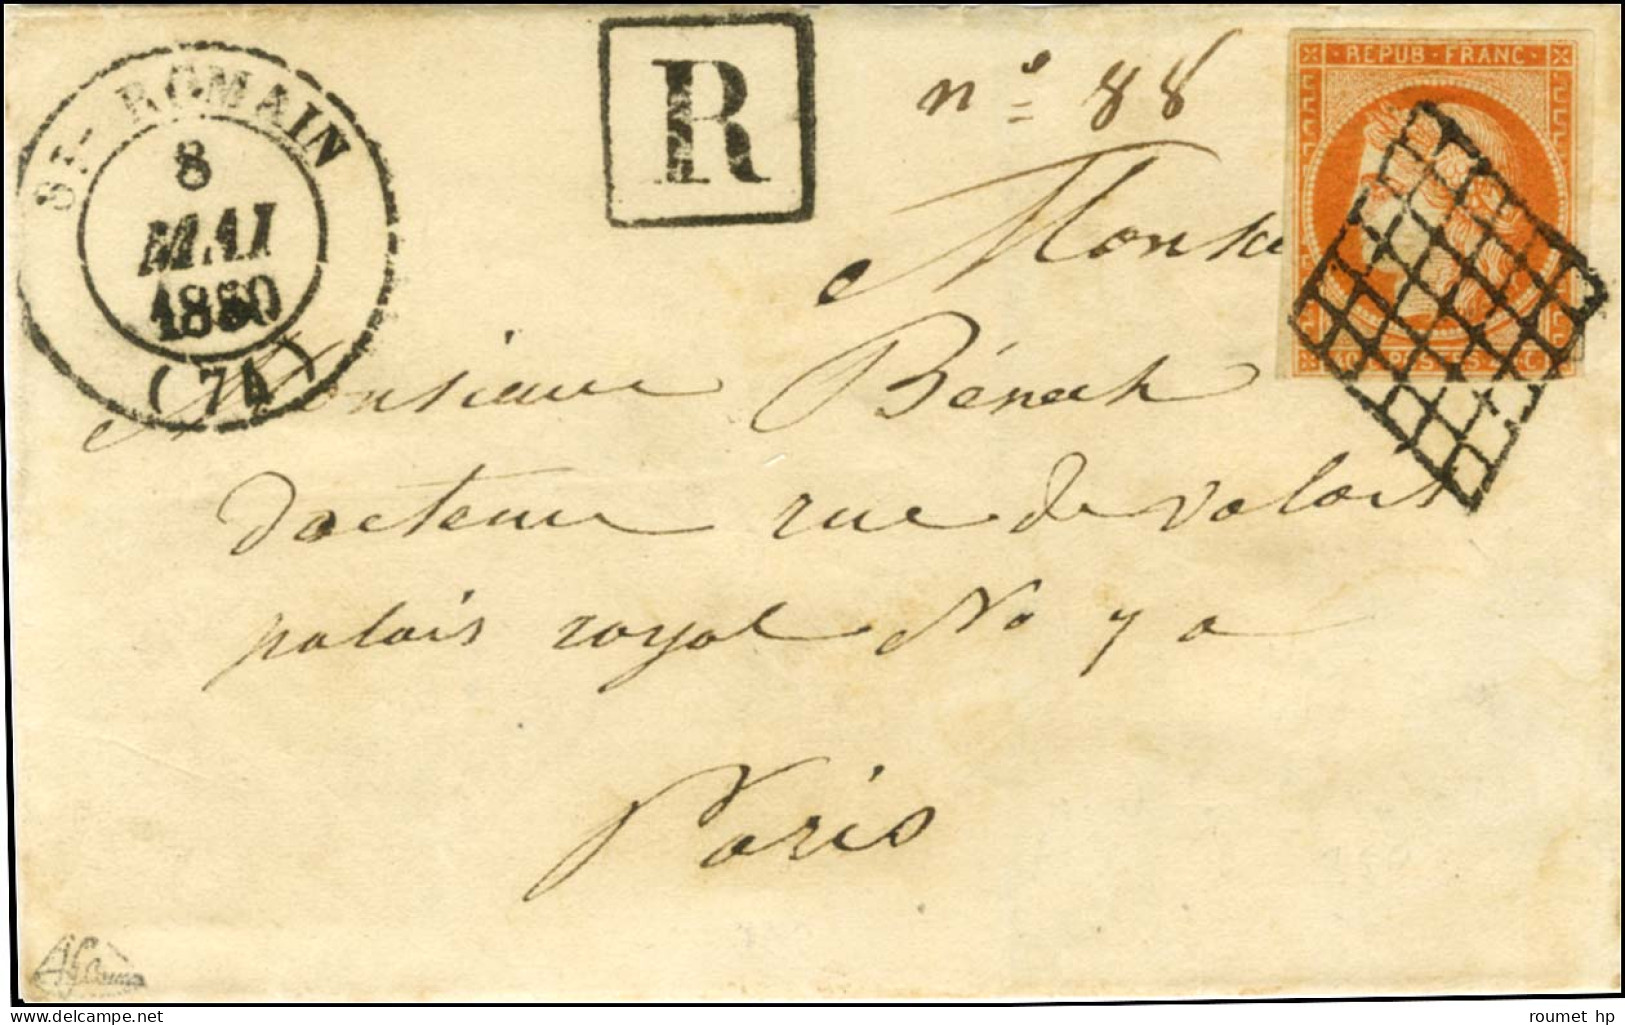 ST-ROMAIN
8
MAI
1850
(74)
R
n° 88
REPUB-FRANC
Monsie
Monsieur Bénech
docteur rue de valois
palais royal No 7 a
Paris
roumet hp